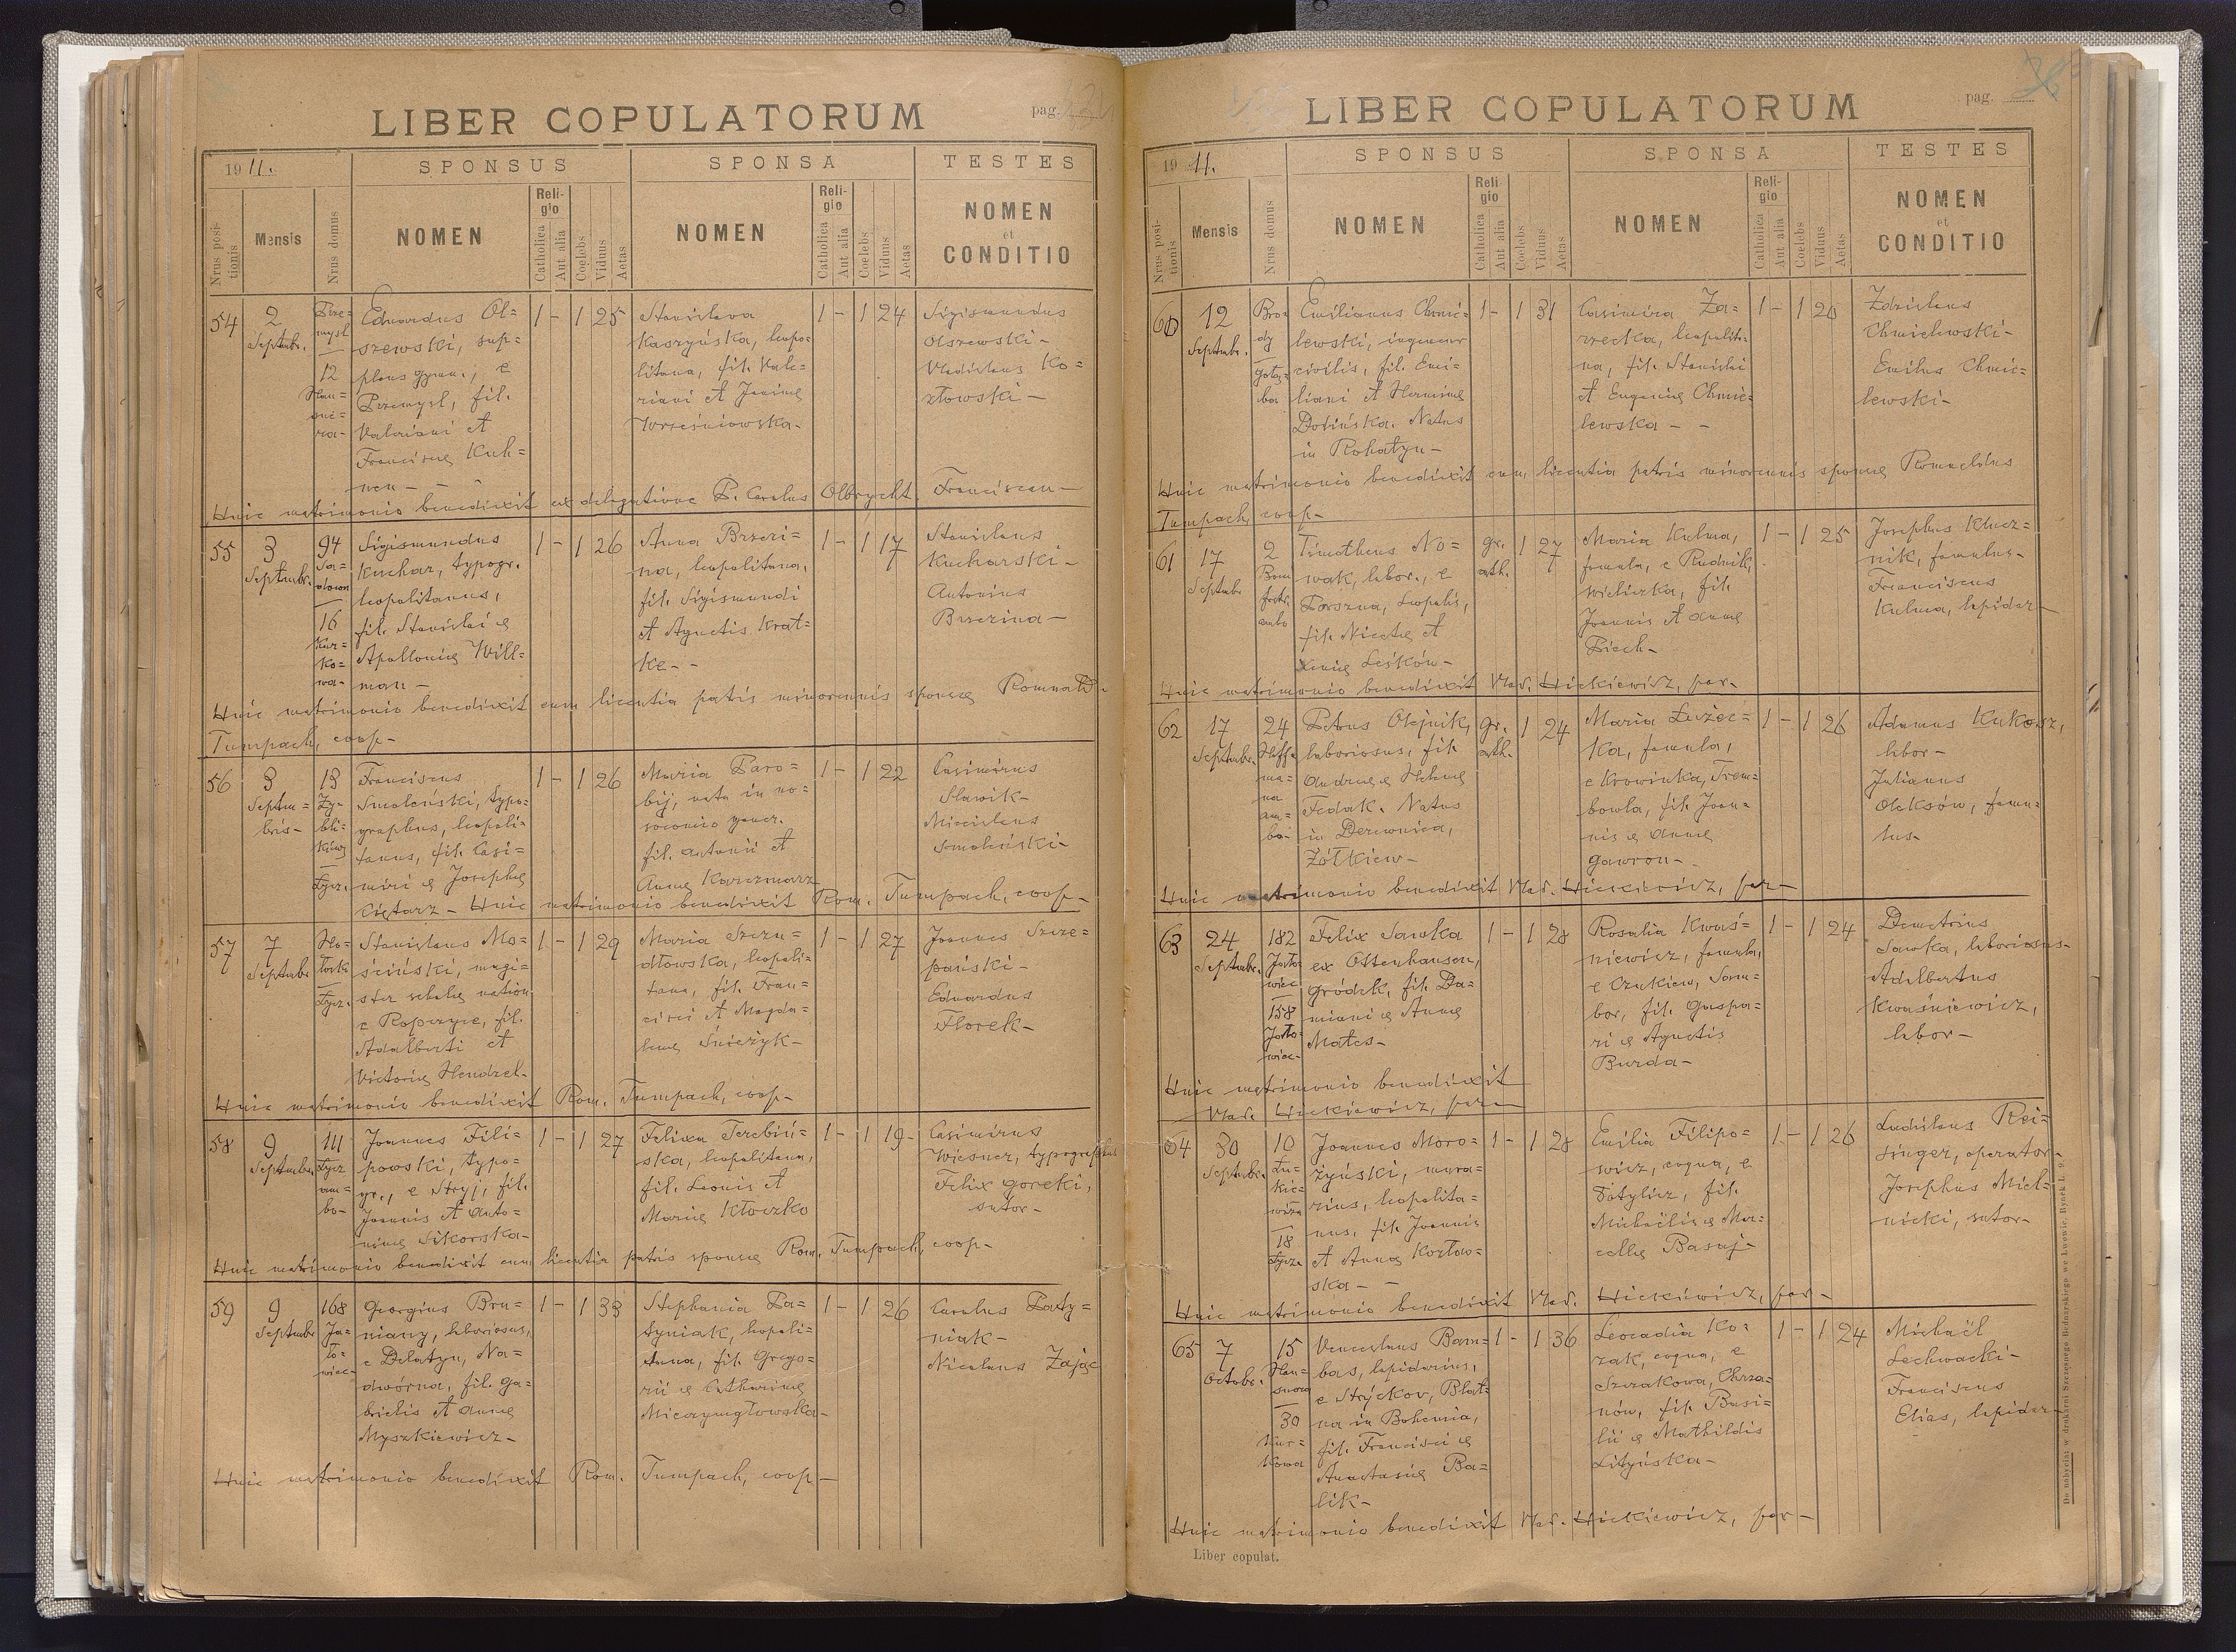 LIBER COPULATORUM
pag.
19 11.
SPONSUS
SPONSA
TESTES
Nrus positionis
Mensis
Nrus domus
NOMEN
Religio
Catholica
Aut alia
Coelebs
Viduus
Aetas
NOMEN
Religio
Catholica
Aut alia
Coelebs
Viduus
Aetas
NOMEN
et
CONDITIO
54
2
Septmbr.
Prze=
mysl
12
Eduardus Ol=
szewski, sup=
plens gymn., e
Przemysl, fil.
Valeriani et
Franciscae Kuh=
nen -
1 - 1 25
Stanislava
Kaszyńska, leopo=
litana, fil. Vale=
riani et Janinae
Wrześniowska-
1 - 1 24
Sigismundus
Olszewski -
Vladislaus Ko=
złowski -
Huic matrimonio benedixit ex delegatione P. Carolus Olbrycht, Franciscan -
55
3
Septmbr.
94
16
Kur=
ko=
wa-
Sigismundus
Kuchar, typogr.
leopolitanus,
fil. Stanislai &
Apolloniae Will=
man -
1 - 1 26
Anna Brzezi=
na, leopolitana,
fil. Sigismundi
et Agnetis Krat=
ke - -
1 - 1 17
Stanislaus
Kucharski -
Antonius
Brzezina -
Huic matrimonio benedixit cum licentia patris minorennis sponsae Romuald
Tumpach, coop -
56
3
Septm=
bris -
13
Zy=
bli=
kiew
Łycz.
Franciscus
Smoleński, typo=
graphus, leopoli=
tanus, fil. Casi=
miri & Josephae
Ciężarz - Huic matrimonio benedixit Rom. Tumpach, coop -
1 - 1 26
Maria Paro=
bij, nata in no=
socomio gener.
fil. Antonii et
Annae Karczmarz
1 - 1 22
Casimirus
Slawik -
Miecislaus
Smoleński -
57
7
Septmbr
Łycz.
Stanislaus Mo=
ściński, magi=
ster scholae nation.
e Ropczyce, fil.
Adalberti et
Victoriae Hendzel.
1 - 1 29
Maria Szczu=
dłowska, leopoli=
tana, fil. Fran=
cisci et Magda=
lenae Śnieżyk -
1 - 1 27
Joannes Szcze=
pański -
Eduardus
Florek -
Huic matrimonio benedixit Rom. Tumpach, coop -
58
9
Septmbr.
111
Łycz
am=
bo-
Joannes Fili=
powski, typo=
gr., e Stryj, fil.
Joannis et Anto=
ninae Sikorska -
1 - 1 27
Felixa Terebiń=
ska, leopolitana,
fil. Leonis et
Mariae Kłoczko
1 - 1 19 -
Casimirus
Wiesner, typographus
Felix Gorecki,
sutor -
Huic matrimonio benedixit cum licentia patris sponsae Rom. Tumpach, coop -
59
9
Septmbr
168
Ja=
ło=
wiec-
Georgius Bru=
niany, laboriosus,
e Delatyn, Na=
dwórna, fil. Ga=
brielis et Annae
Myszkiewicz -
1 - 1 33
Stephania Pa=
tyniak, leopoli=
tana, fil. Grego=
rii & Catharinae
Mieczymąłowska -
1 - 1 26
Carolus Paty=
niak -
Nicolaus Zając
Huic matrimonio benedixit Rom. Tumpach, coop -
LIBER COPULATORUM
pag.
19 11.
SPONSUS
SPONSA
TESTES
Nrus positionis
Mensis
Nrus domus
NOMEN
Religio
Catholica
Aut alia
Coelebs
Viduus
Aetas
NOMEN
Religio
Catholica
Aut alia
Coelebs
Viduus
Aetas
NOMEN
et
CONDITIO
60
12
Septmbr.
Bro=
dy
Gołą=
ba
Emilianus Chmie=
lewski, ingenieur
civilis, fil. Emi=
liani et Herminae
Dolińska. Natus
in Rohatyn -
1 - 1 31
Casimira Za=
rzecka, leopolita=
na, fil. Stanislai
et Eugeniae Chmie=
lewska - -
1 - 1 20
Zdzislaus
Chmielewski -
Emilus Chmie=
lewski -
Huic matrimonio benedixit cum licentia patris minorennis sponsae Romualdus
Tumpach, coop -
61
17
Septmbr
2
Timotheus No=
wak, labor., e
Porszna, Leopolis,
fil. Nicetae et
Xeniae Leśków -
gr. cath.
1 27
Maria Kulma,
famula, e Rudnik,
Wieliczka, fil.
Joannis et Annae
Piech -
1 - 1 25
Josephus Klucz=
nik, famulus -
Franciscus
Kulma, lapidar -
Huic matrimonio benedixit Vlad. Hickiewicz, par -
62
17
Septmbr.
24
Hoff=
ma=
na
am=
bo-
Petrus Olejnik,
laboriosus, fil.
Andreae & Helenae
Fedak. Natus
in Derewnica,
Żółkiew -
gr. cath.
1 24
Maria Łużec=
ka, famula,
e Krowinka, Trem=
bowla, fil. Joan=
nis & Annae
Gawron -
1 - 1 26
Adamus Kukosz,
labor -
Julianus
Oleksów, famu=
lus -
Huic matrimonio benedixit Vlad. Hickiewicz, par -
63
24
Septmbr.
182
Jało=
wiec
158
Jało=
wiec -
Felix Sawka
ex Ottenhausen,
Gródek, fil. Da=
miani & Annae
Mates -
1 - 1 28
Rosalia Kwaś=
niewicz, famula,
e Czukiew, Sam=
bor, fil. Gaspa=
ri & Agnetis
Burda -
1 - 1 24
Demetrius
Sawka, laboriosus -
Adalbertus
Kwaśniewicz,
labor -
Huic matrimonio benedixit
Vlad. Hickiewicz, par -
64
30
Septmbr.
10
18
Łycza
Joannes Moro=
żyński, mura=
rius, leopolita=
nus, fil. Joannis
et Annae Kozłow=
ska - -
1 - 1 28
Emilia Filipo=
wicz, coqua, e
Potylicz, fil.
Michaëlis & Mar=
cellae Basaj -
1 - 1 26
Ladislaus Rei=
singer, operator -
Josephus Miel=
nicki, sutor -
Huic matrimonio benedixit Vlad. Hickiewicz, par -
65
7
Octobr.
15
30
Kur=
kowa
Venceslaus Bam=
bas, lapidarius,
e Strýckov, Blat=
na in Bohemia,
fil. Francisci &
Anastasiae Ba=
lik -
1 - 1 36
Leocadia Ko=
zak, coqua, e
Szczakowa, Chrza=
nów, fil. Basi=
lii & Mathildis
Lityńska -
1 - 1 24
Michaël
Lechwacki -
Franciscus
Elias, lapidar -
Huic matrimonio benedixit Vlad. Hickiewicz, par -
Liber copulat.
Do nabycia: w drukarni Szczęsnego Bednarskiego we Lwowie, Rynek l. 9.